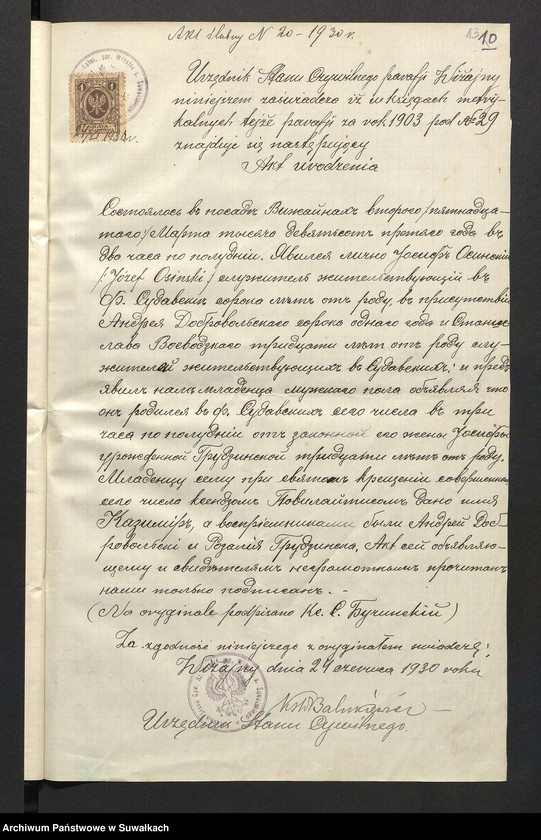 Akt ślubny N 20 - 1930 r.
10
Urzędnik Stanu Cywilnego parafji Wiżajny
niniejszem zaświadcza iż w księgach metry-
kalnych tejże parafji za rok 1903 pod № 29
znajduje się następujący
Akt urodzenia
Состоялось въ посадѣ Вижайнах второго /пятнадца-
таго:/ Марта тысяча девятьсот третяго года въ
два часа по полудніи. Явился лично Іосифъ Осинскій
/Józef Osinski/ служитель жительствующій въ
ф. Судавскихъ сорока лѣтъ отъ роду въ присутствіи
Андрея Добровольскаго сорока одного года и Станис
лава Воеводзкаго тридцати лѣтъ отъ роду слу-
жителей жительствующихъ въ Судавскихъ; и предъ
явилъ намъ младенца мужскаго пола объявляя что
онъ родился въ ф. Судавскихъ сего числа въ три
часа по полудніи отъ законной его жены Іосифы
урожденной Грудзинской тридцати лѣтъ отъ роду.
Младенцу сему при святомъ крещеніи совершенномъ
сего числа ксендзомъ Повилайтисомъ дано имя
Казимиръ, а воспріемниками были Андрей Доб-
ровольскі и Розалія Грудзинска. Акт сей объявляю-
щему и свидѣтелямъ неграмотнымъ прочитан
нами только подписан. -
(Na oryginale podpisano Кс. С. Бучинскій)
Za zgodność niniejszego z oryginałem świadczę:
Wiżajny dnia 24 czerwca 1930 roku
Urzędnik Stanu Cywilnego.
Archiwum Państwowe w Suwałkach